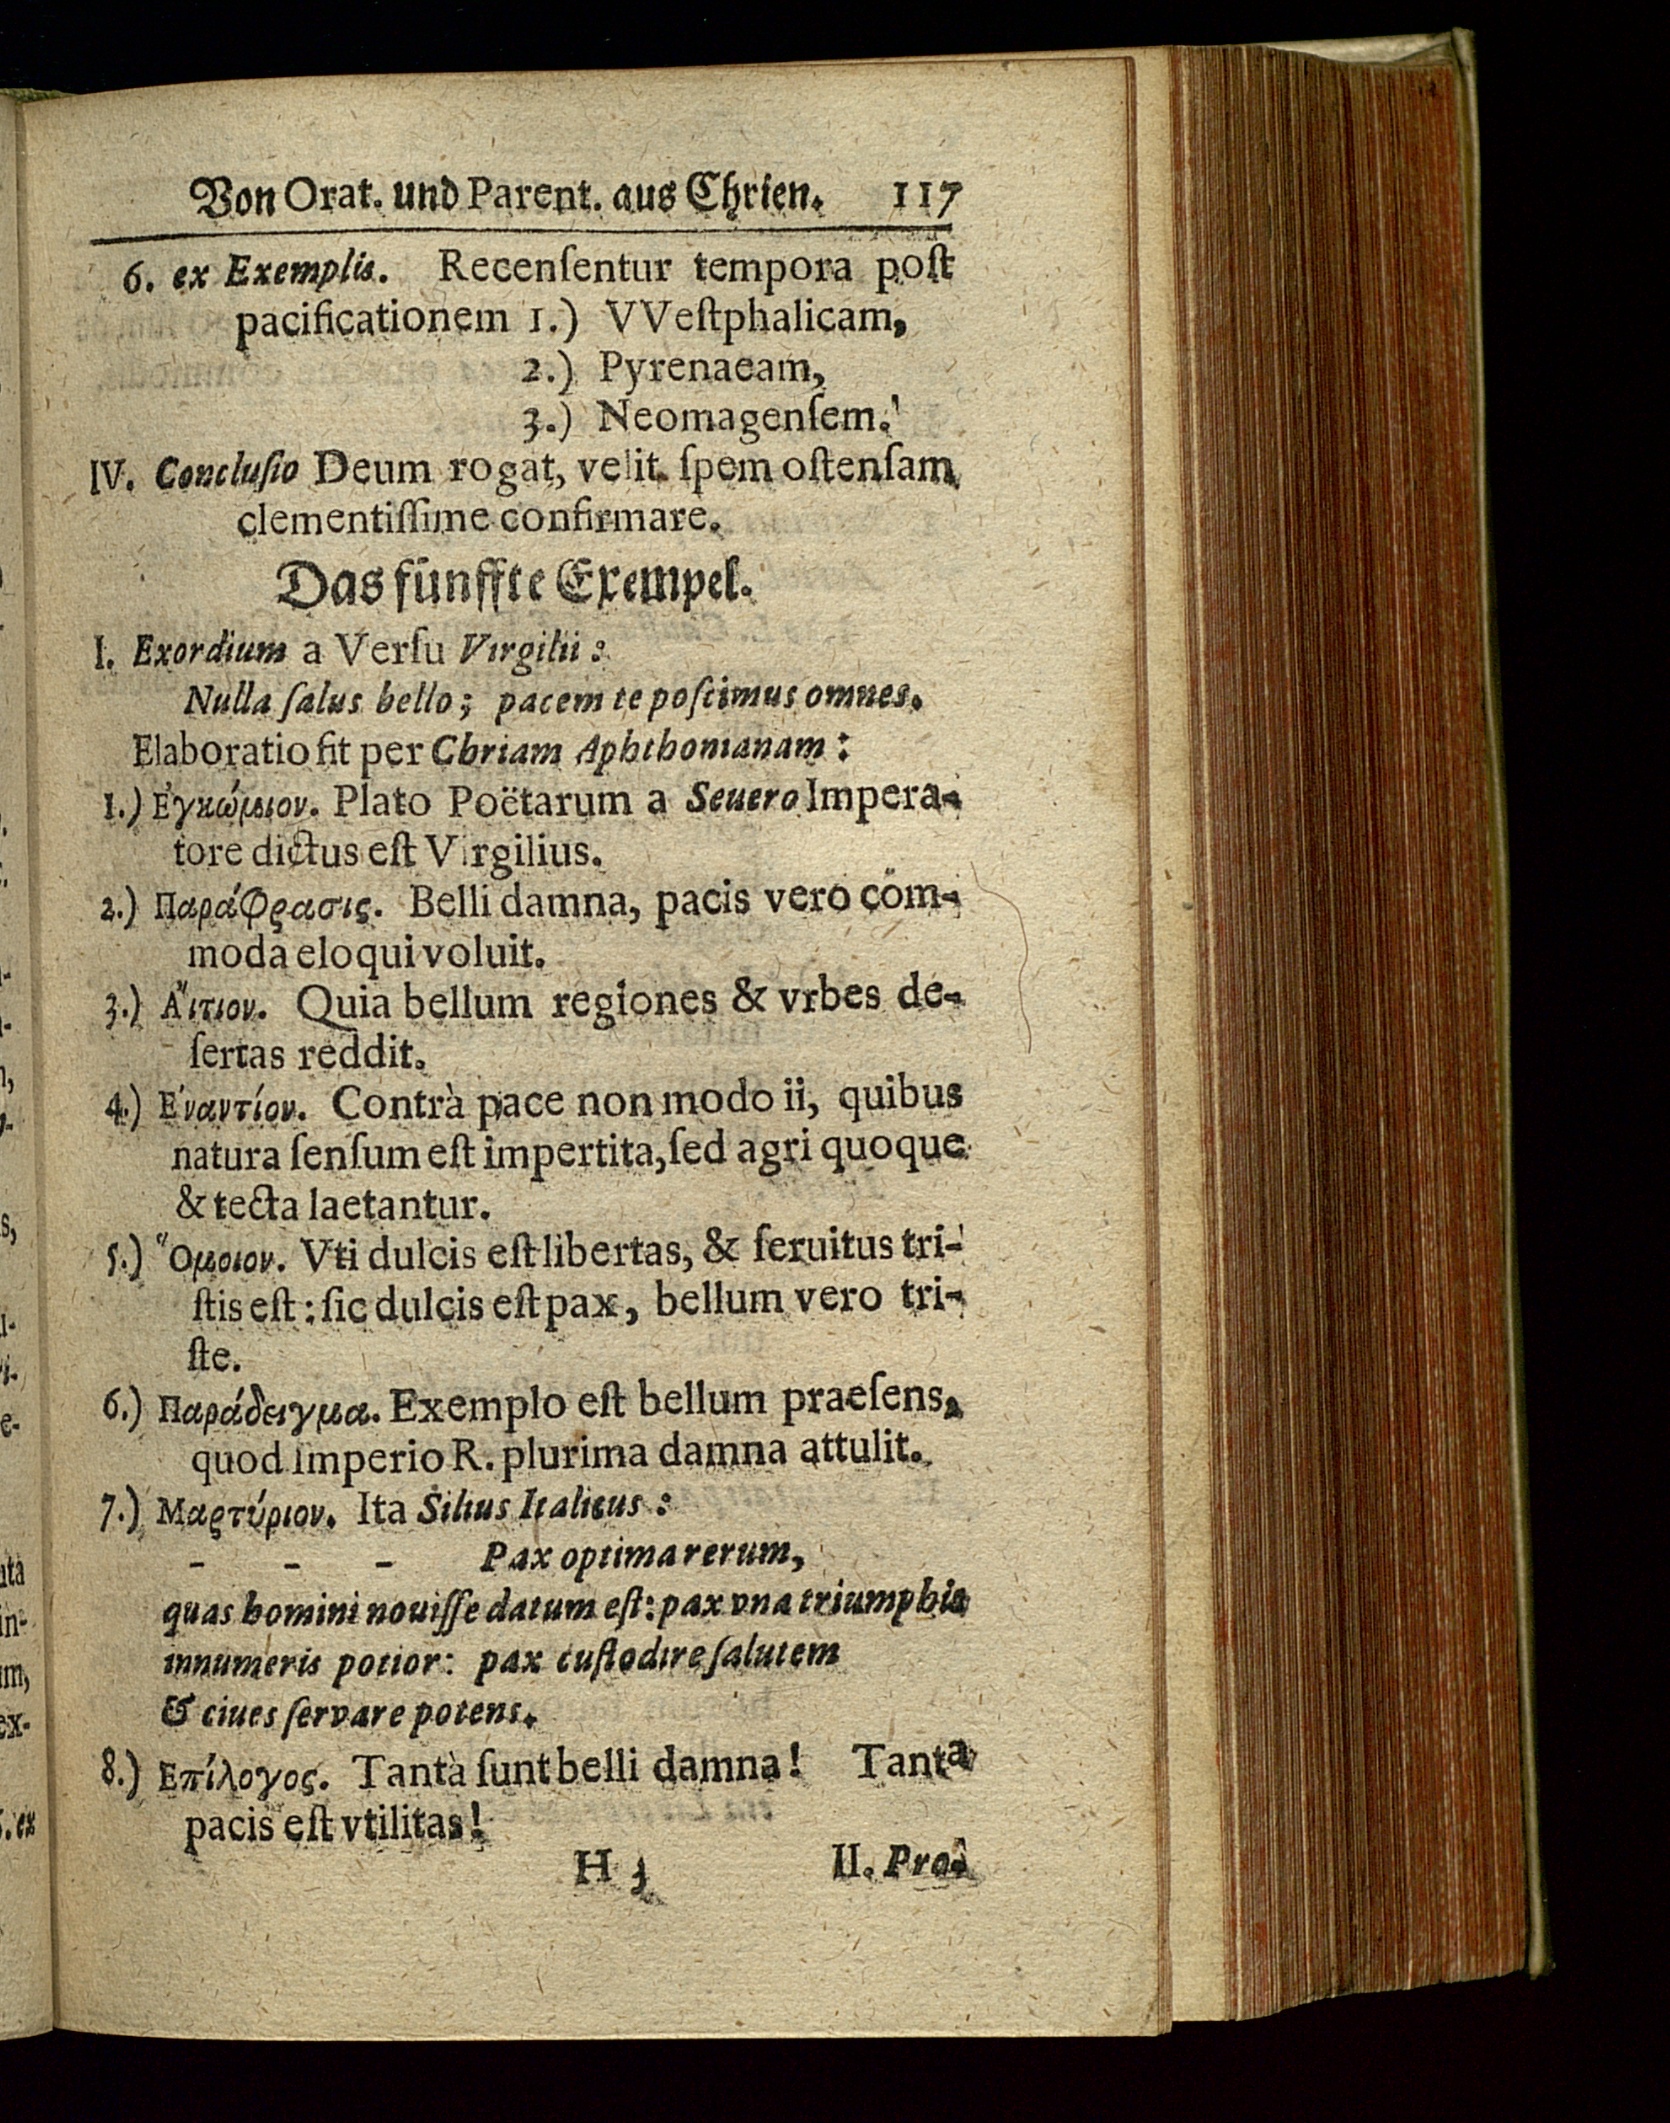 Von Orat. und Parent. aus Chrien. 117
6. ex Exemplis. Recenſentur tempora poſt
pacificationem 1.) VVeſtphalicam,
2.) Pyrenaeam,
3.) Neomagenſem.
IV. Concluſio Deum rogat, velit ſpem oſtenſam
clementiſſime confirmare.
Das fünffte Exempel.
I. Exordium a Verſu Virgilii:
Nulla ſalus bello; pacem te poſcimus omnes.
Elaboratio fit per Chriam Aphthonianam:
1.) Ἐγκώμιον. Plato Poëtarum a Seuero Impera-
tore dictus eſt Virgilius.
2.) Παράφρασις. Belli damna, pacis vero com-
moda eloqui voluit.
3.) Ἄιτιον. Quia bellum regiones & vrbes de-
ſertas reddit.
4.) Ἐναντίον. Contrà pace non modo ii, quibus
natura ſenſum eſt impertita, ſed agri quoque
& tecta laetantur.
5.) Ὅμοιον. Vti dulcis eſt libertas, & ſeruitus tri-
ſtis eſt: ſic dulcis eſt pax, bellum vero tri-
ſte.
6.) Παράδειγμα. Exemplo eſt bellum praeſens,
quod Imperio R. plurima damna attulit.
7.) Μαρτύριον. Ita Silius Italicus:
- - - Pax optima rerum,
quas homini nouiſſe datum eſt: pax vna triumphis
innumeris potior: pax cuſtodire ſalutem
& ciues ſervare potens.
8.) Επίλογος. Tantà ſunt belli damna! Tanta
pacis eſt vtilitas!
H 3 II. Pro-